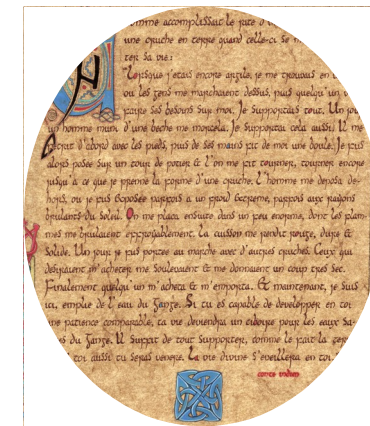 omme accomplissait le rite d'u
une cruche en terre quand celle-ci se m
ter sa vie :
"Lorsque j'étais encore argile, je me trouvais en
ou les gens me marchaient dessus, puis quelqu'un
faire ses besoins sur moi. Je supportais tout. Un jour
un homme muni d'une beche me morcela. Je supportai cela aussi. Il me
petrit d'abord avec les pieds, puis de ses mains fit de moi une boule. Je fus
alors posée sur un tour de potier & l'on me fit tourner, tourner encore
jusqu'à ce que je prenne la forme d'une cruche. L'homme me déposa de-
hors, où je fus exposée parfois à un froid extreme, parfois aux rayons
brulants du soleil. On me plaça ensuite dans un feu enorme, dont les flam-
mes me brulaient effroyablement. La cuisson me rendit rouge, dure &
solide. Un jour je fus portée au marché avec d'autres cruches. Ceux qui
desiraient m'acheter me soulevaient & me donnaient un coup très sec.
Finalement quelqu'un m'acheta & m'emporta. Et maintenant, je suis
ici, emplie de l'eau du Gange. Si tu es capable de developper en toi
ne patience comparable, ta vie deviendra un ciboire pour les eaux Sa-
es du Gange. Il suffit de tout supporter, comme le fait la ter
toi aussi tu seras venere. La vie divine s'eveillera en toi.
conte indien